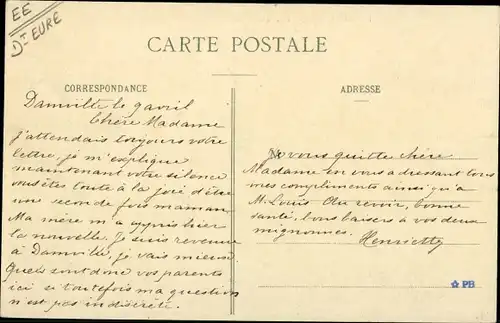 EE
Dt EURE
CARTE POSTALE
CORRESPONDANCE
Damville le 9 avril
Chère Madame
j'attendais toujours votre
lettre, je m'explique
maintenant votre silence
vous êtes toute à la joie d'être
une seconde fois maman
Ma mère m'a appris hier
la nouvelle. Je suis revenue
à Damville, je vais mieux
Quels sont donc vos parents
ici si toutefois ma question
n'est pas indiscrète.
ADRESSE
Je vous quitte chère
Madame en vous adressant tous
mes compliments ainsi qu'à
M. Louis Au revoir, bonne
santé, bons baisers à vos deux
mignonnes.
Henriette
☆ PB